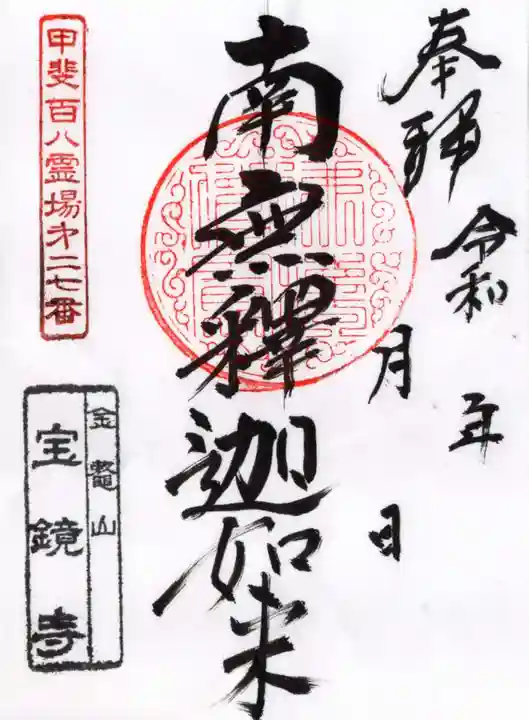 奉拝 令和 年
月 日
南無釋迦如来
甲斐百八霊場第二七番
金鼇山
宝鏡寺